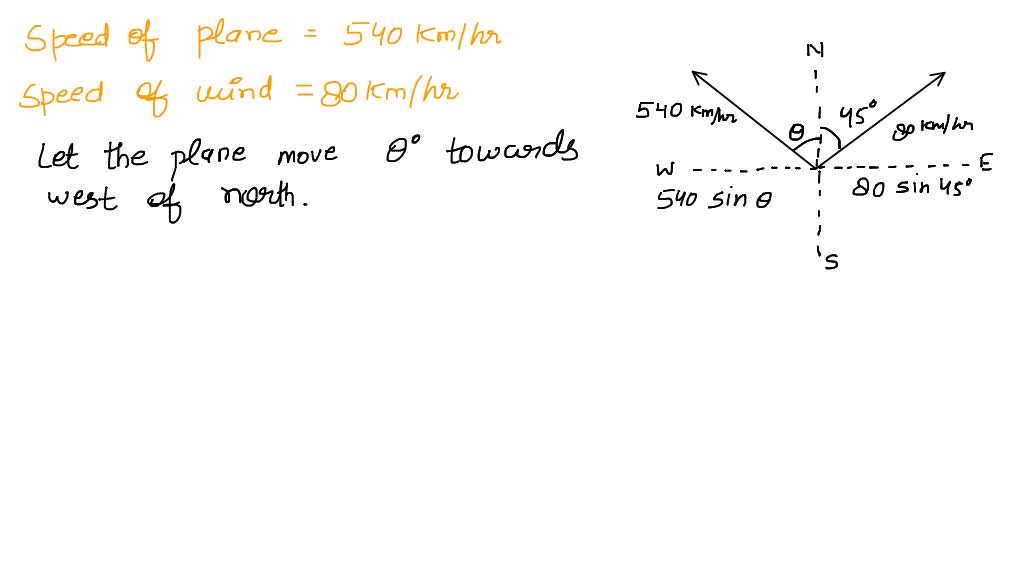 Speed of plane = 540 Km/hr
Speed of wind = 80 Km/hr
Let the plane move θ° towards
west of north.
N
540 Km/hr
θ
45°
80 Km/hr
W
E
540 sin θ
80 sin 45°
S